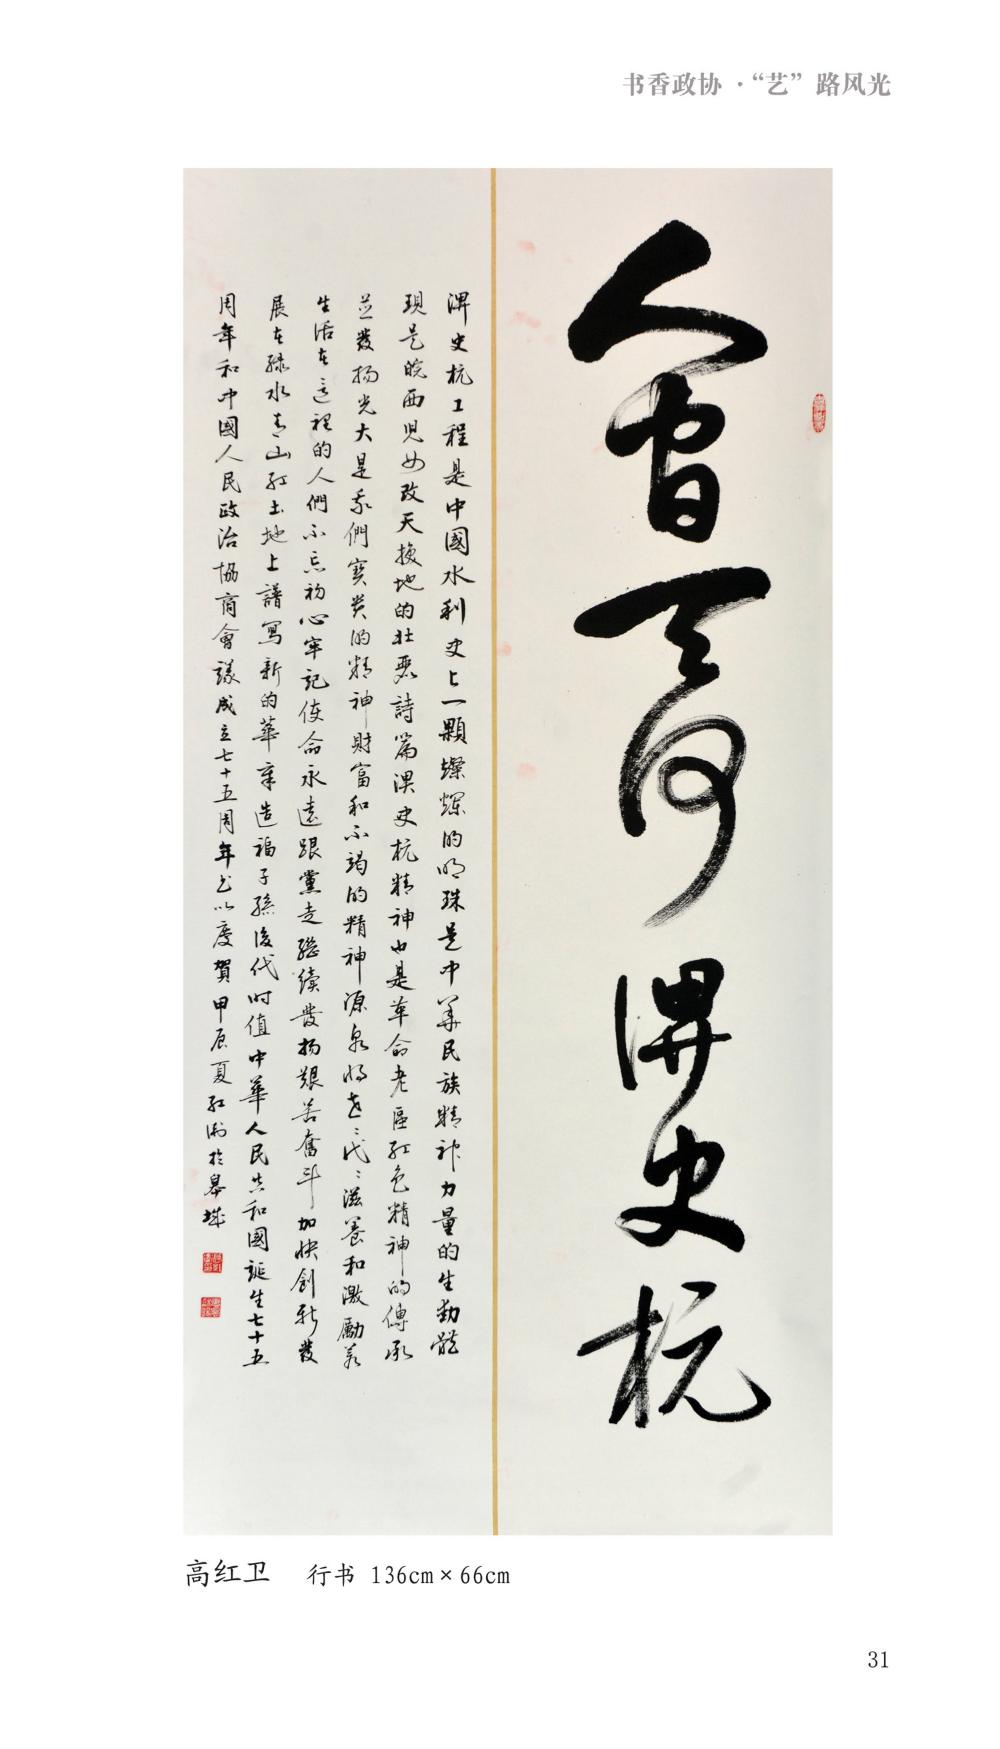 书香政协·“艺”路风光
人间天河淠史杭
淠史杭工程是中國水利史上一顆燦爛的明珠是中華民族精神力量的生動體
現是皖西兒女改天換地的壯麗詩篇淠史杭精神也是革命老區紅色精神的傳承
並發揚光大是我們寶貴的精神財富和不竭的精神源泉將世世代代滋養和激勵着
生活在這裡的人們不忘初心牢記使命永遠跟黨走繼續發揚艱苦奮斗加快創新發
展在綠水青山紅土地上譜寫新的華章造福子孫後代时值中華人民共和國誕生七十五
周年和中國人民政治協商會議成立七十五周年书以慶賀甲辰夏紅衛於皋城
高红卫 行书 136cm×66cm
31